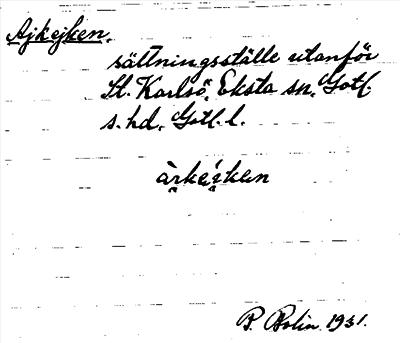 Ajkejken,
sättningsställe utanför
St. Karlsö, Eksta sn, Gotl.
s. hd, Gotl. l.
P. Bolin 1931.